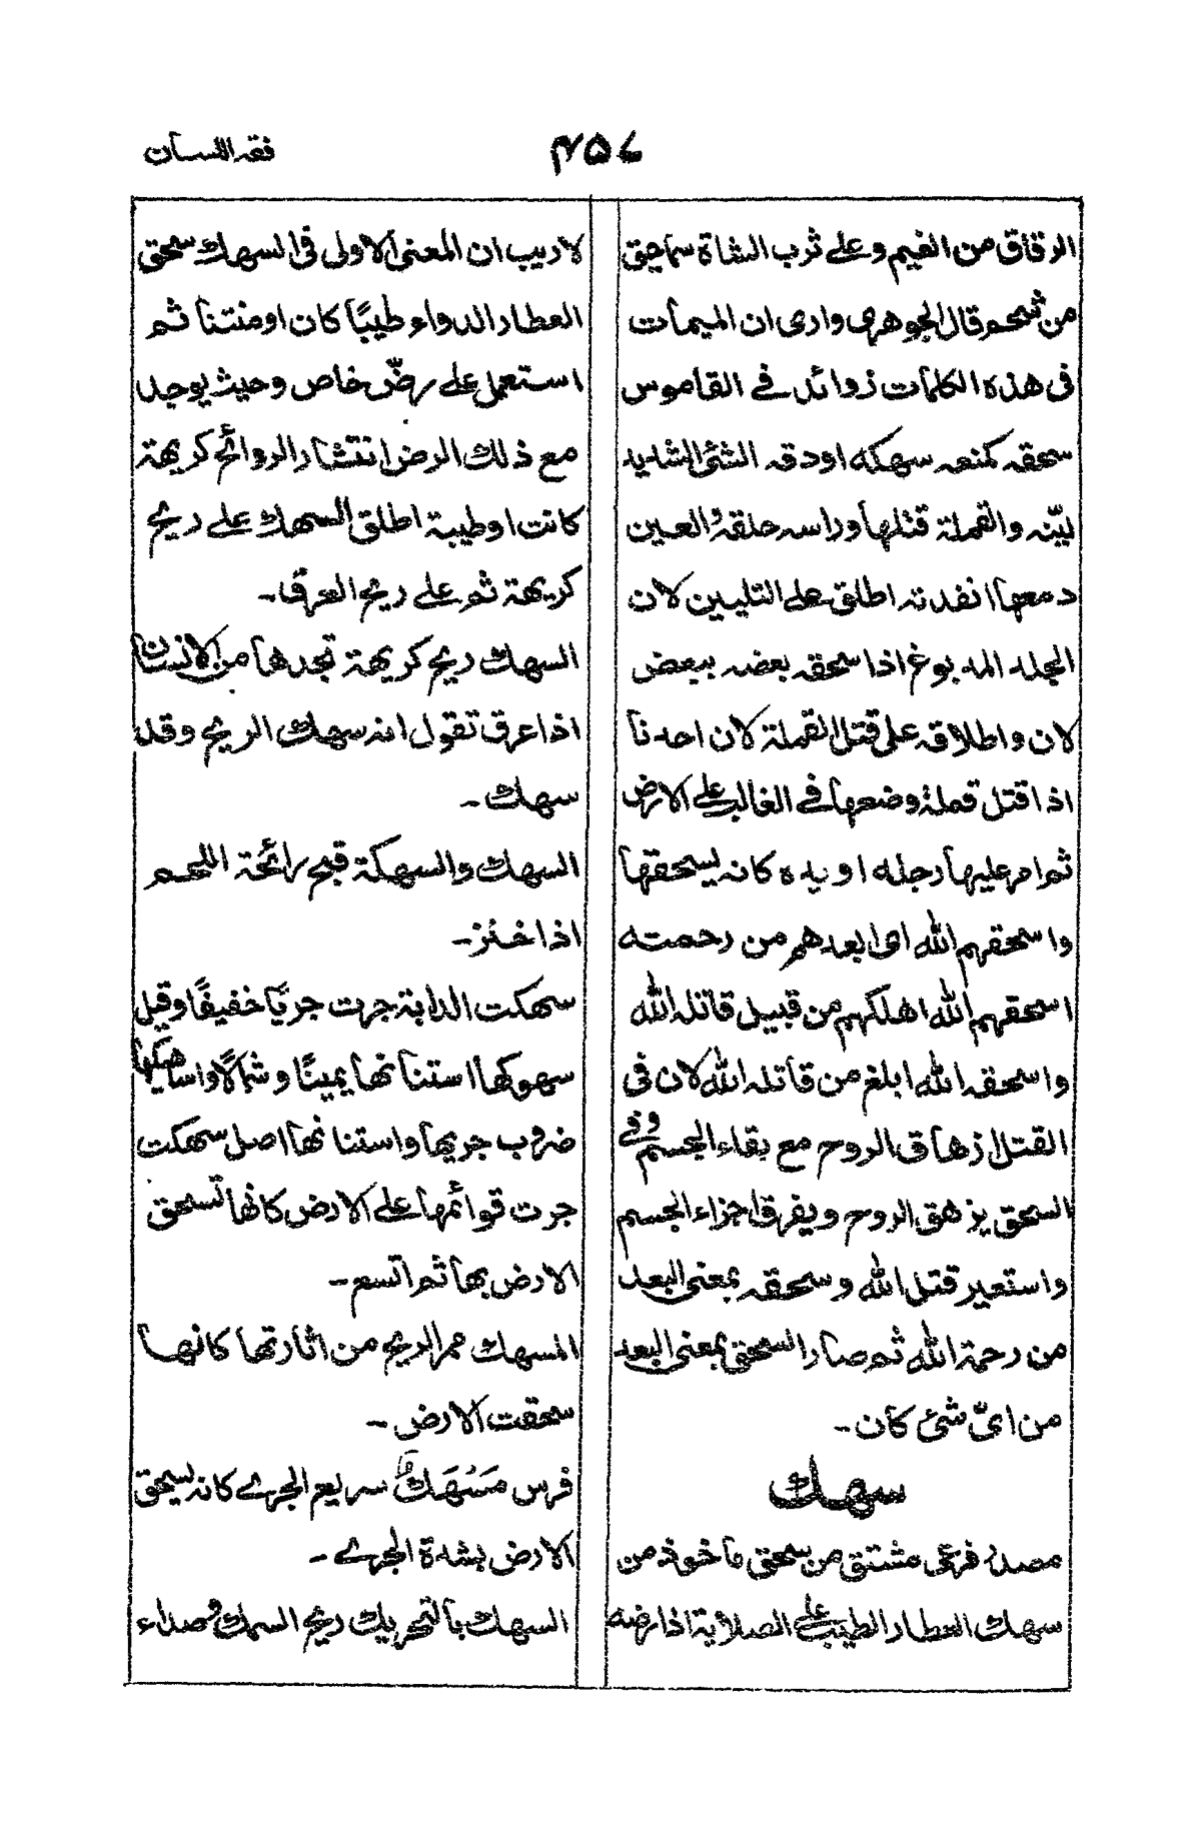 فقہ اللسان
۴۵۷
الرقاق من الغيم وعلى ثرب الشاة سماحيق
من شحم قال الجوهرى وارى ان الميمات
فى هذه الكلمات زوائد فے القاموس
سحقه كمنعه سهكه اودقه الشئ الشديد
ليّنه والقملة قتلها وراسه حلقه والعين
دمعها انفدته اطلق على التليين لان
الجلد المدبوغ اذا سحقه بعضه ببعض
لان واطلاقه على قتل القملة لان احدنا
اذا قتل قملة وضعها فے الغالب على الارض
ثم امر عليها رجله او يده كانه يسحقها
واسحقهم الله اى ابعدهم من رحمته
اسحقهم الله اهلكهم من قبيل قاتله الله
واسحقه الله ابلغ من قاتله الله لان فى
القتل ازهاق الروح مع بقاء الجسم وفے
السحق يزهق الروح ويفرق اجزاء الجسم
واستعير قتل الله وسحقه بمعنى البعد
من رحمة الله ثم صار السحق بمعنى البعد
من اىّ شئ كان۔
سهك
مصدر فرعى مشتق من سحق ماخوذ من
سهك العطار الطيب على الصلاية اذا رضه
لا ريب ان المعنى الاولى فى السهك سحق
العطار الدواء طيبًا كان او منتنا ثم
استعمل على رضّ خاص وحيث يوجد
مع ذلك الرض انتشار الروائح كريهة
كانت او طيبة اطلق السهك على ريح
كريهة ثم على ريح العرق۔
السهك ريح كريهة تجدها من الانسان
اذا عرق تقول انه سهك الريح وقد
سهك۔
السهك والسهكة قبح رائحة اللحم
اذا خنز۔
سهكت الدابة جرت جريًا خفيفًا وقيل
سهوكها استنانها يمينًا وشمالًا واساهيكها
ضروب جريها واستنانها اصل سهكت
جرت قوائمها على الارض كانها تسحق
الارض بها ثم اتسع۔
المسهك ممر الريح من اثارتها كانها
سحقت الارض۔
فرس مَسْهَك سريع الجرے كانه يسحق
الارض بشدة الجرے۔
السهك بالتحريك ريح السمك وصداء